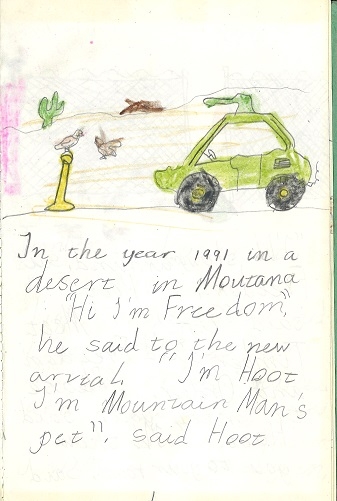 In the year 1991 in a
desert in Moutana
"Hi I'm Freedom",
he said to the new
arvial. "I'm Hoot
I'm Mountain Man's
pet". said Hoot